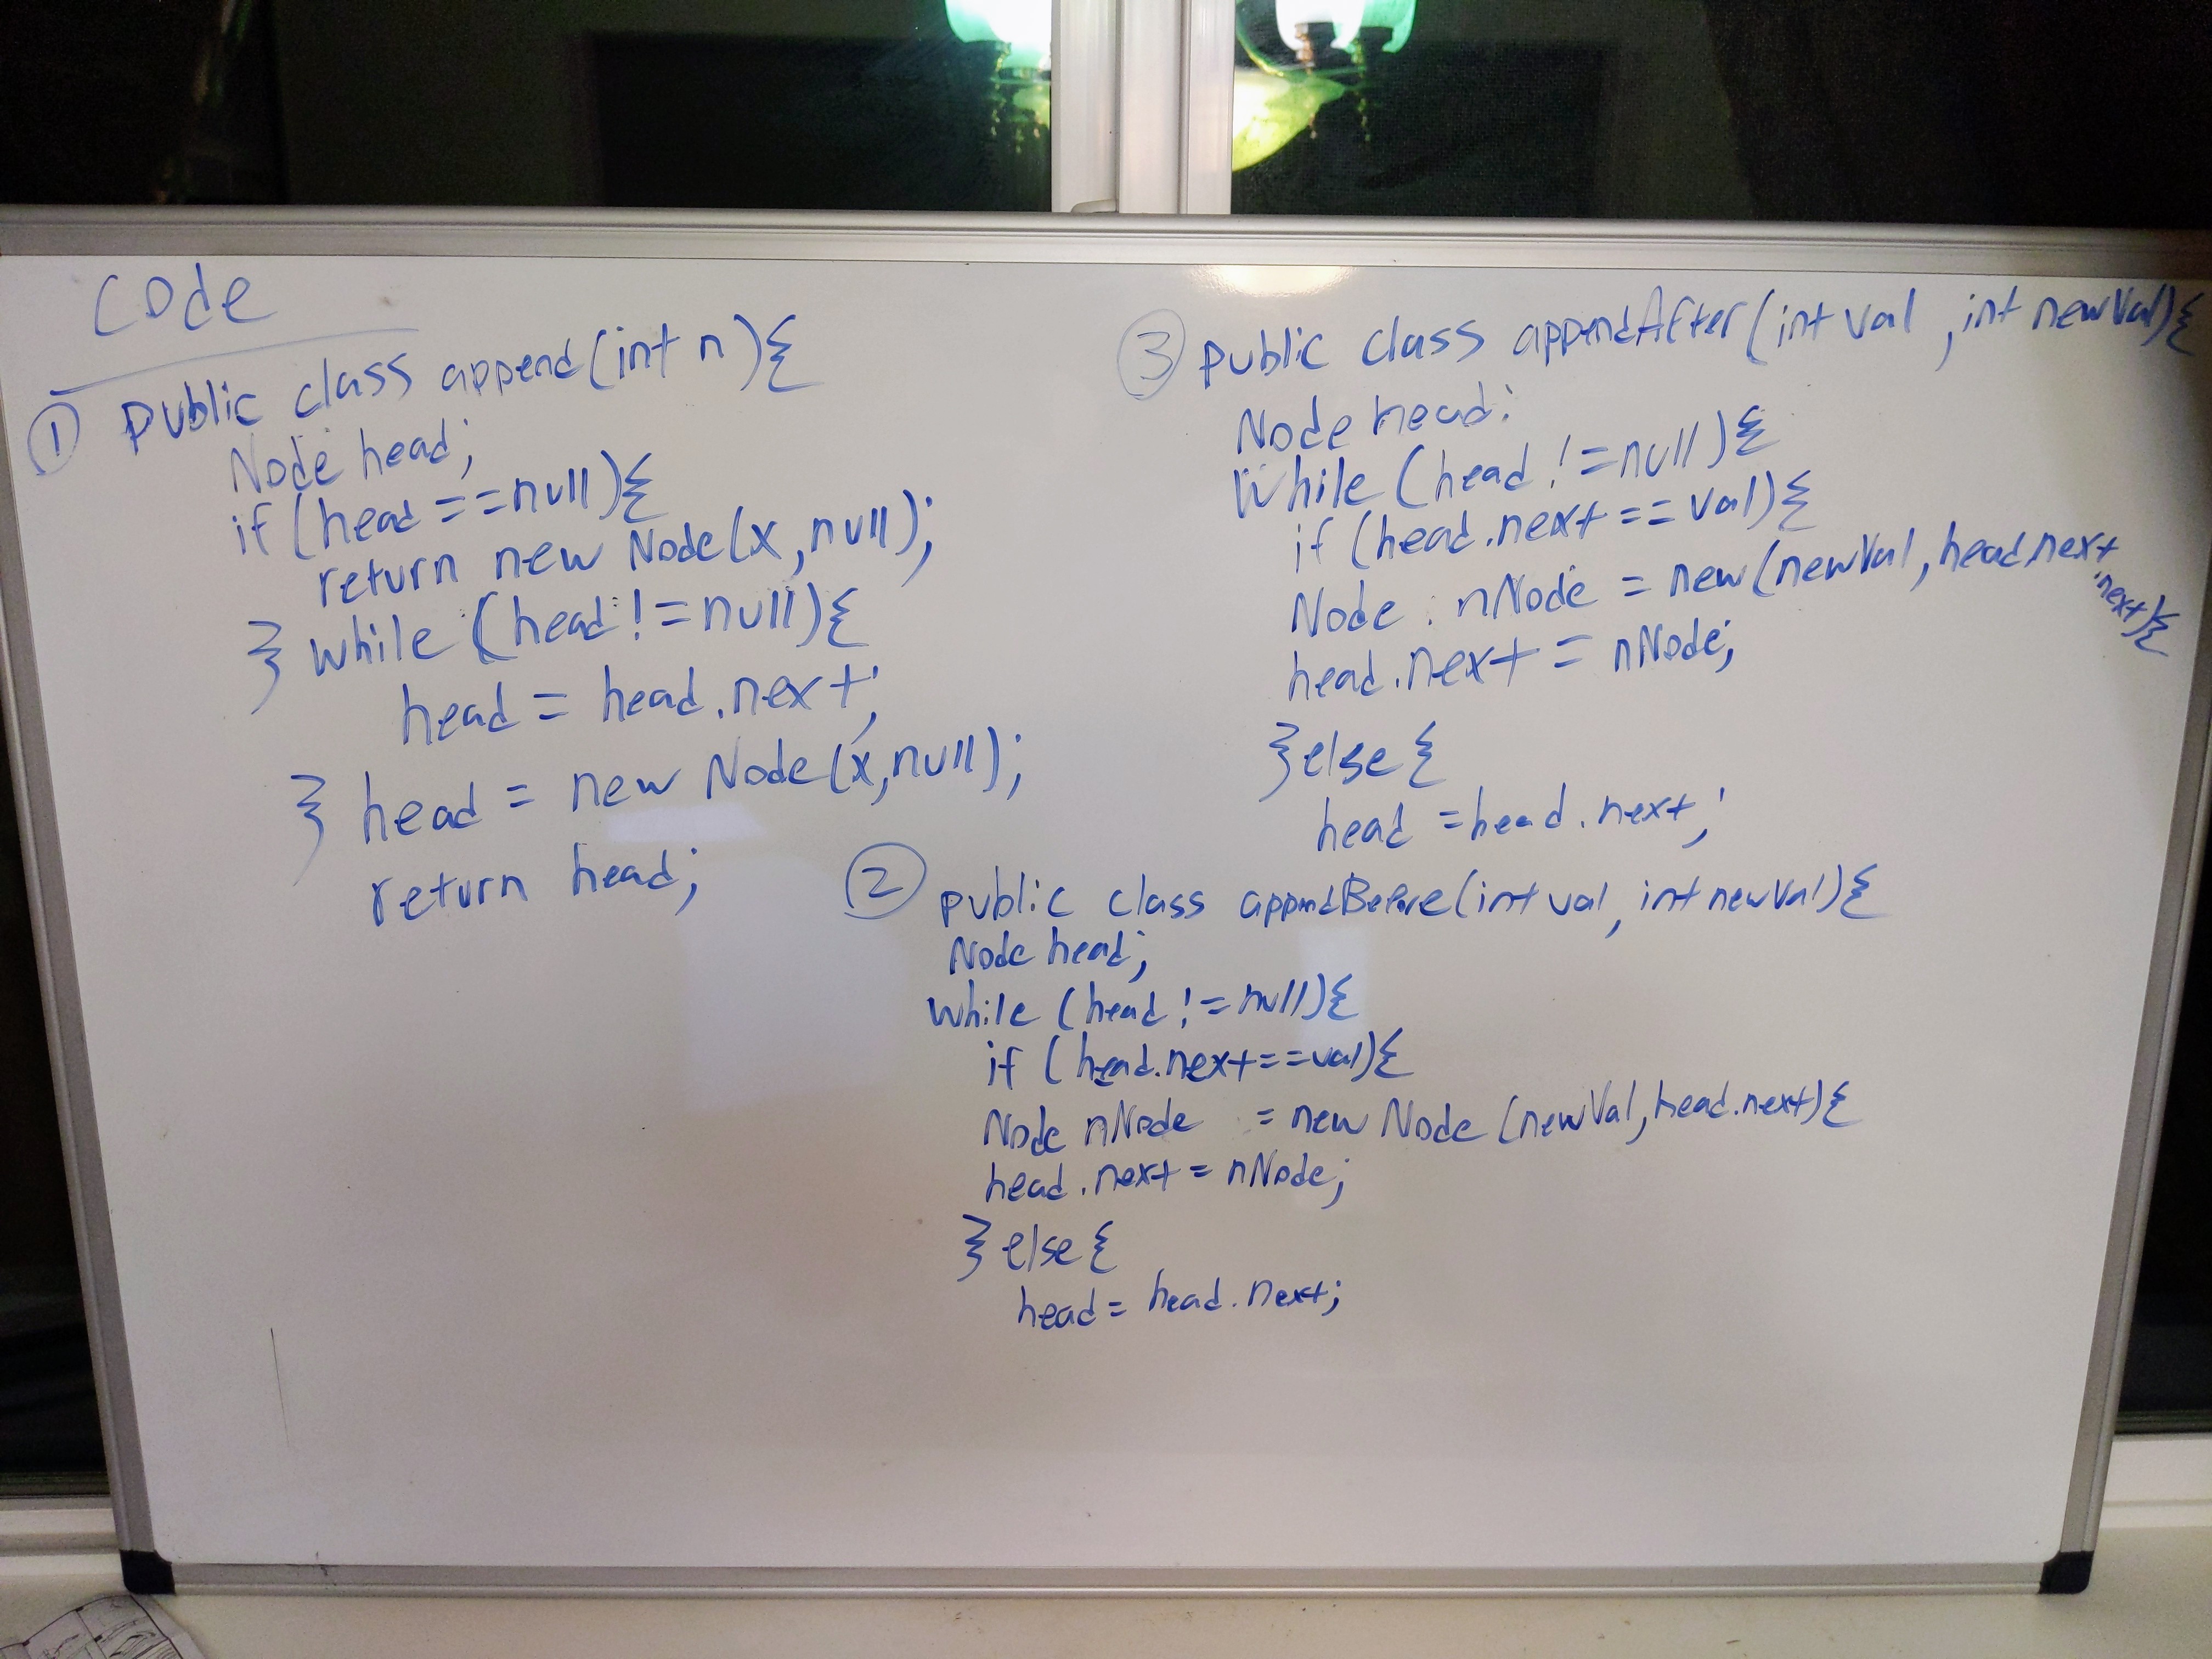 Code
① public class append(int n){
Node head;
if (head ==null){
return new Node(x,null);
} while (head !=null){
head = head.next;
} head = new Node(x,null);
return head;
③ public class appendAfter(int val, int newVal){
Node head;
While (head !=null){
if (head.next == val){
Node nNode = new(newVal, head.next
.next){
head.next = nNode;
} else {
head =head.next;
② public class appendBefore(int val, int newVal){
Node head;
While (head !=null){
if (head.next==val){
Node nNode = new Node (newVal, head.next){
head.next = nNode;
} else {
head = head.next;